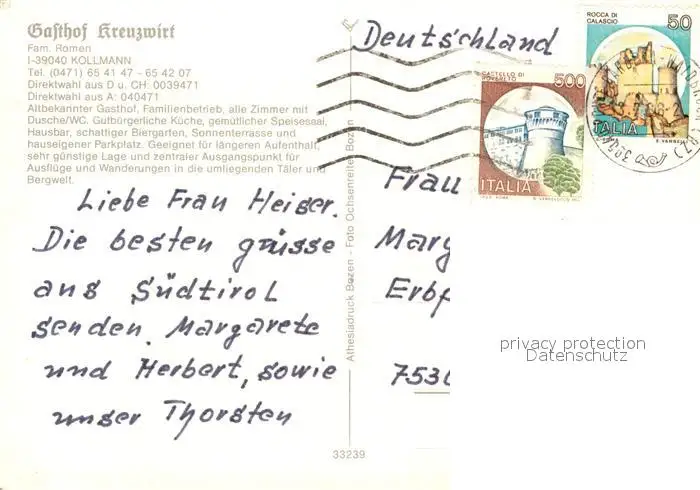 Gasthof Kreuzwirt
Fam. Romen
I-39040 KOLLMANN
Tel. (0471) 65 41 47 - 65 42 07
Direktwahl aus D u. CH: 0039471
Direktwahl aus A: 040471
Altbekannter Gasthof, Familienbetrieb, alle Zimmer mit
Dusche/WC. Gutbürgerliche Küche, gemütlicher Speisesaal,
Hausbar, schattiger Biergarten, Sonnenterrasse und
hauseigener Parkplatz. Geeignet für längeren Aufenthalt,
sehr günstige Lage und zentraler Ausgangspunkt für
Ausflüge und Wanderungen in die umliegenden Täler und
Bergwelt.
Liebe Frau Heiser.
Die besten grüsse
aus Südtirol
senden. Margarete
und Herbert, sowie
unser Thorsten
Athesiadruck Bozen - Foto Ochsenreiter Bozen
33239
Deutschland
CASTELLO DI
ROVERETO
500
ITALIA
ROCCA DI
CALASCIO
50
ITALIA
Frau
Marg
Erbp
753
privacy protection
Datenschutz